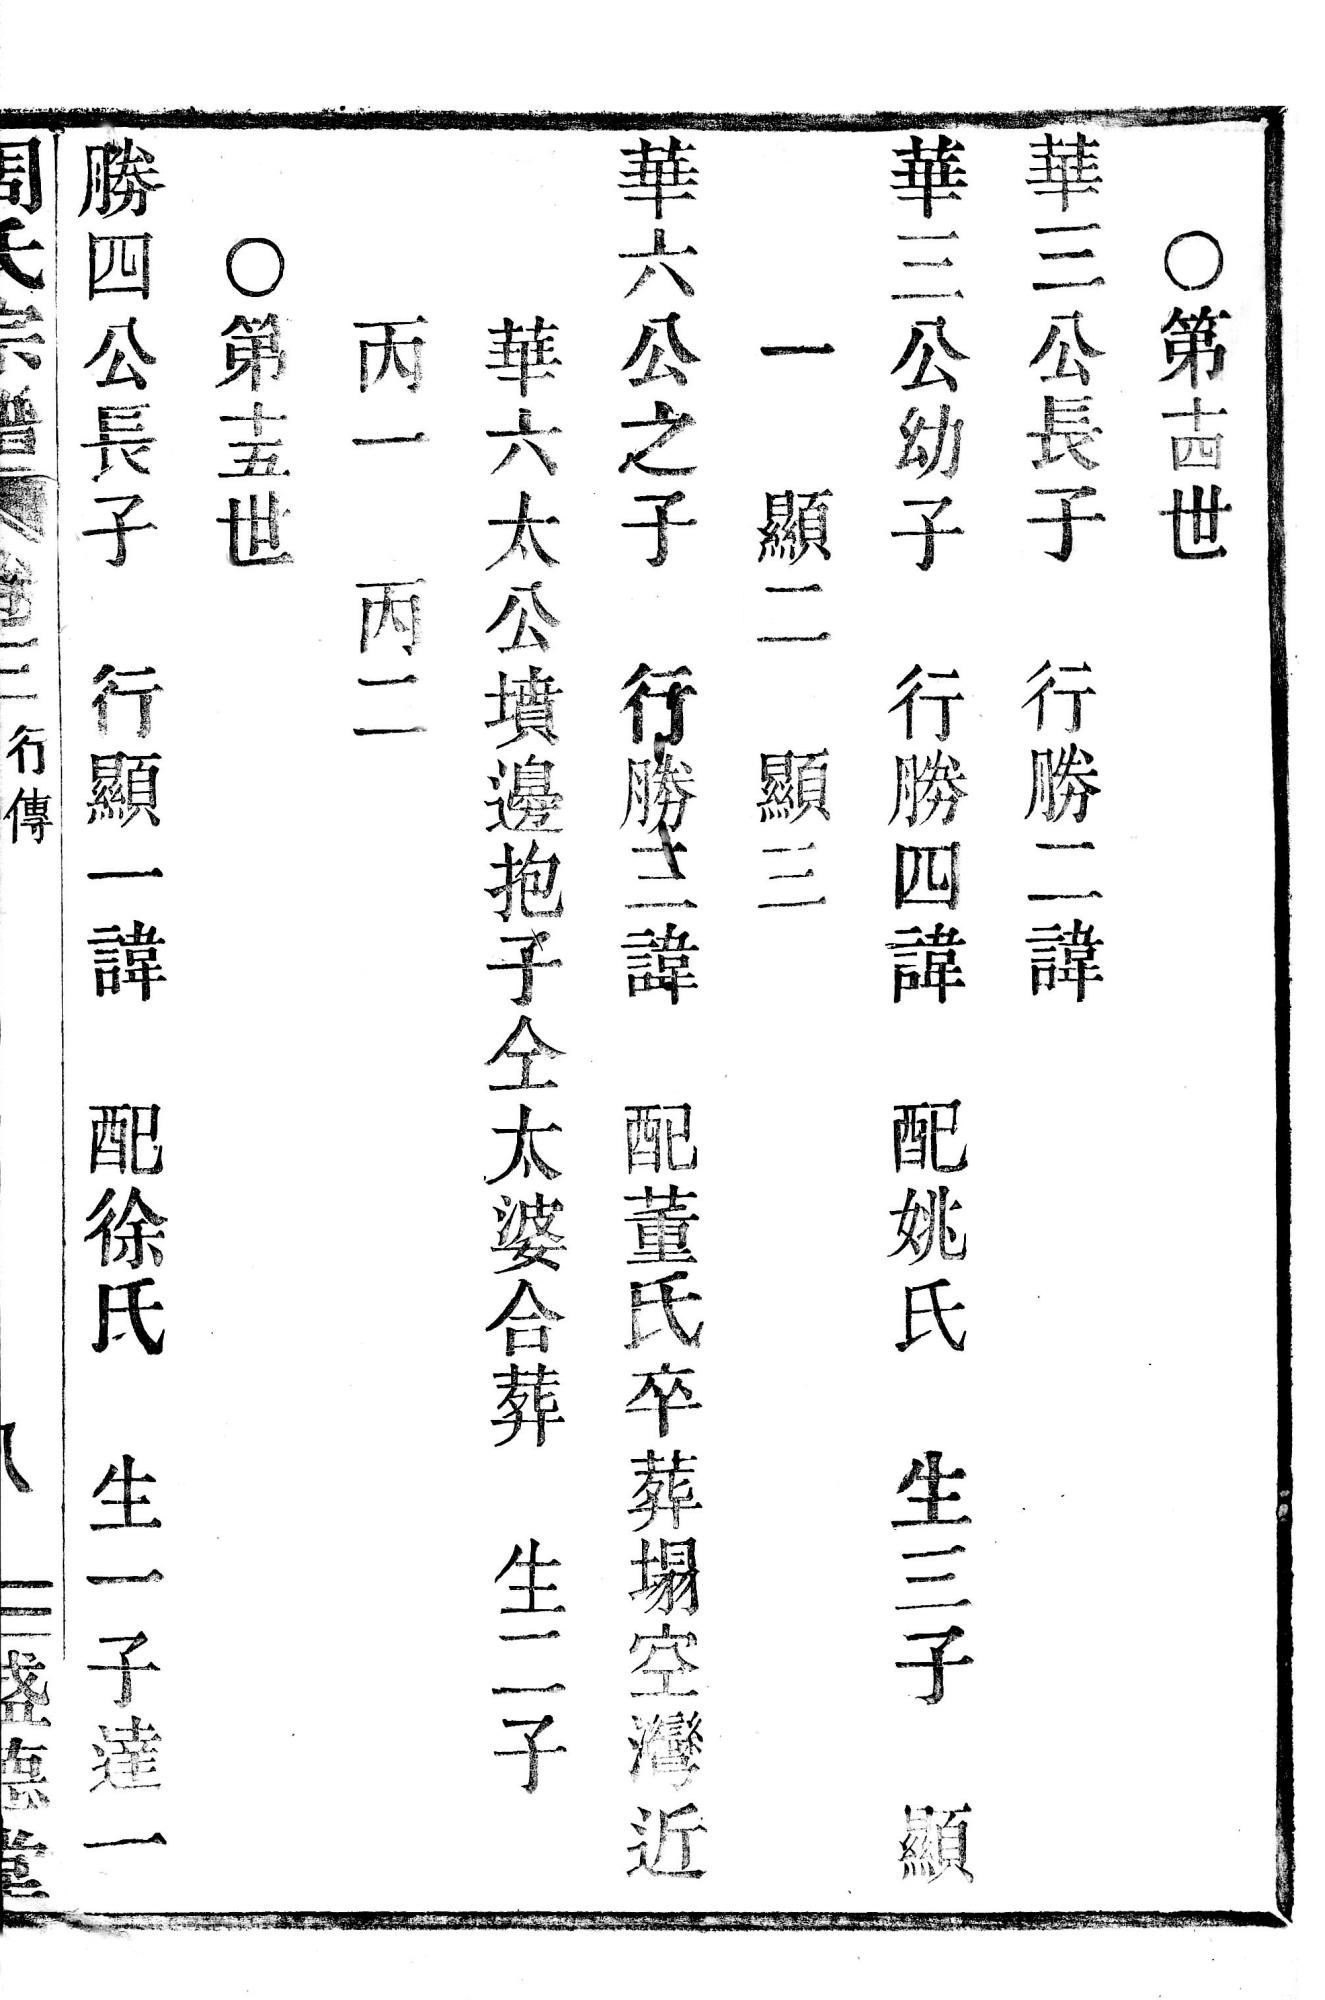 ○第十四世
華三公長子　行勝二諱
華三公幼子　行勝四諱　配姚氏　生三子　顯
一　顯二　顯三
華六公之子　行勝三諱　配董氏卒葬塌空灣近
華六太公墳邊抱子仝太婆合葬　生二子
丙一　丙二
○第十五世
勝四公長子　行顯一諱　配徐氏　生一子達一
周氏宗譜　卷三　行傳　八　盛德堂